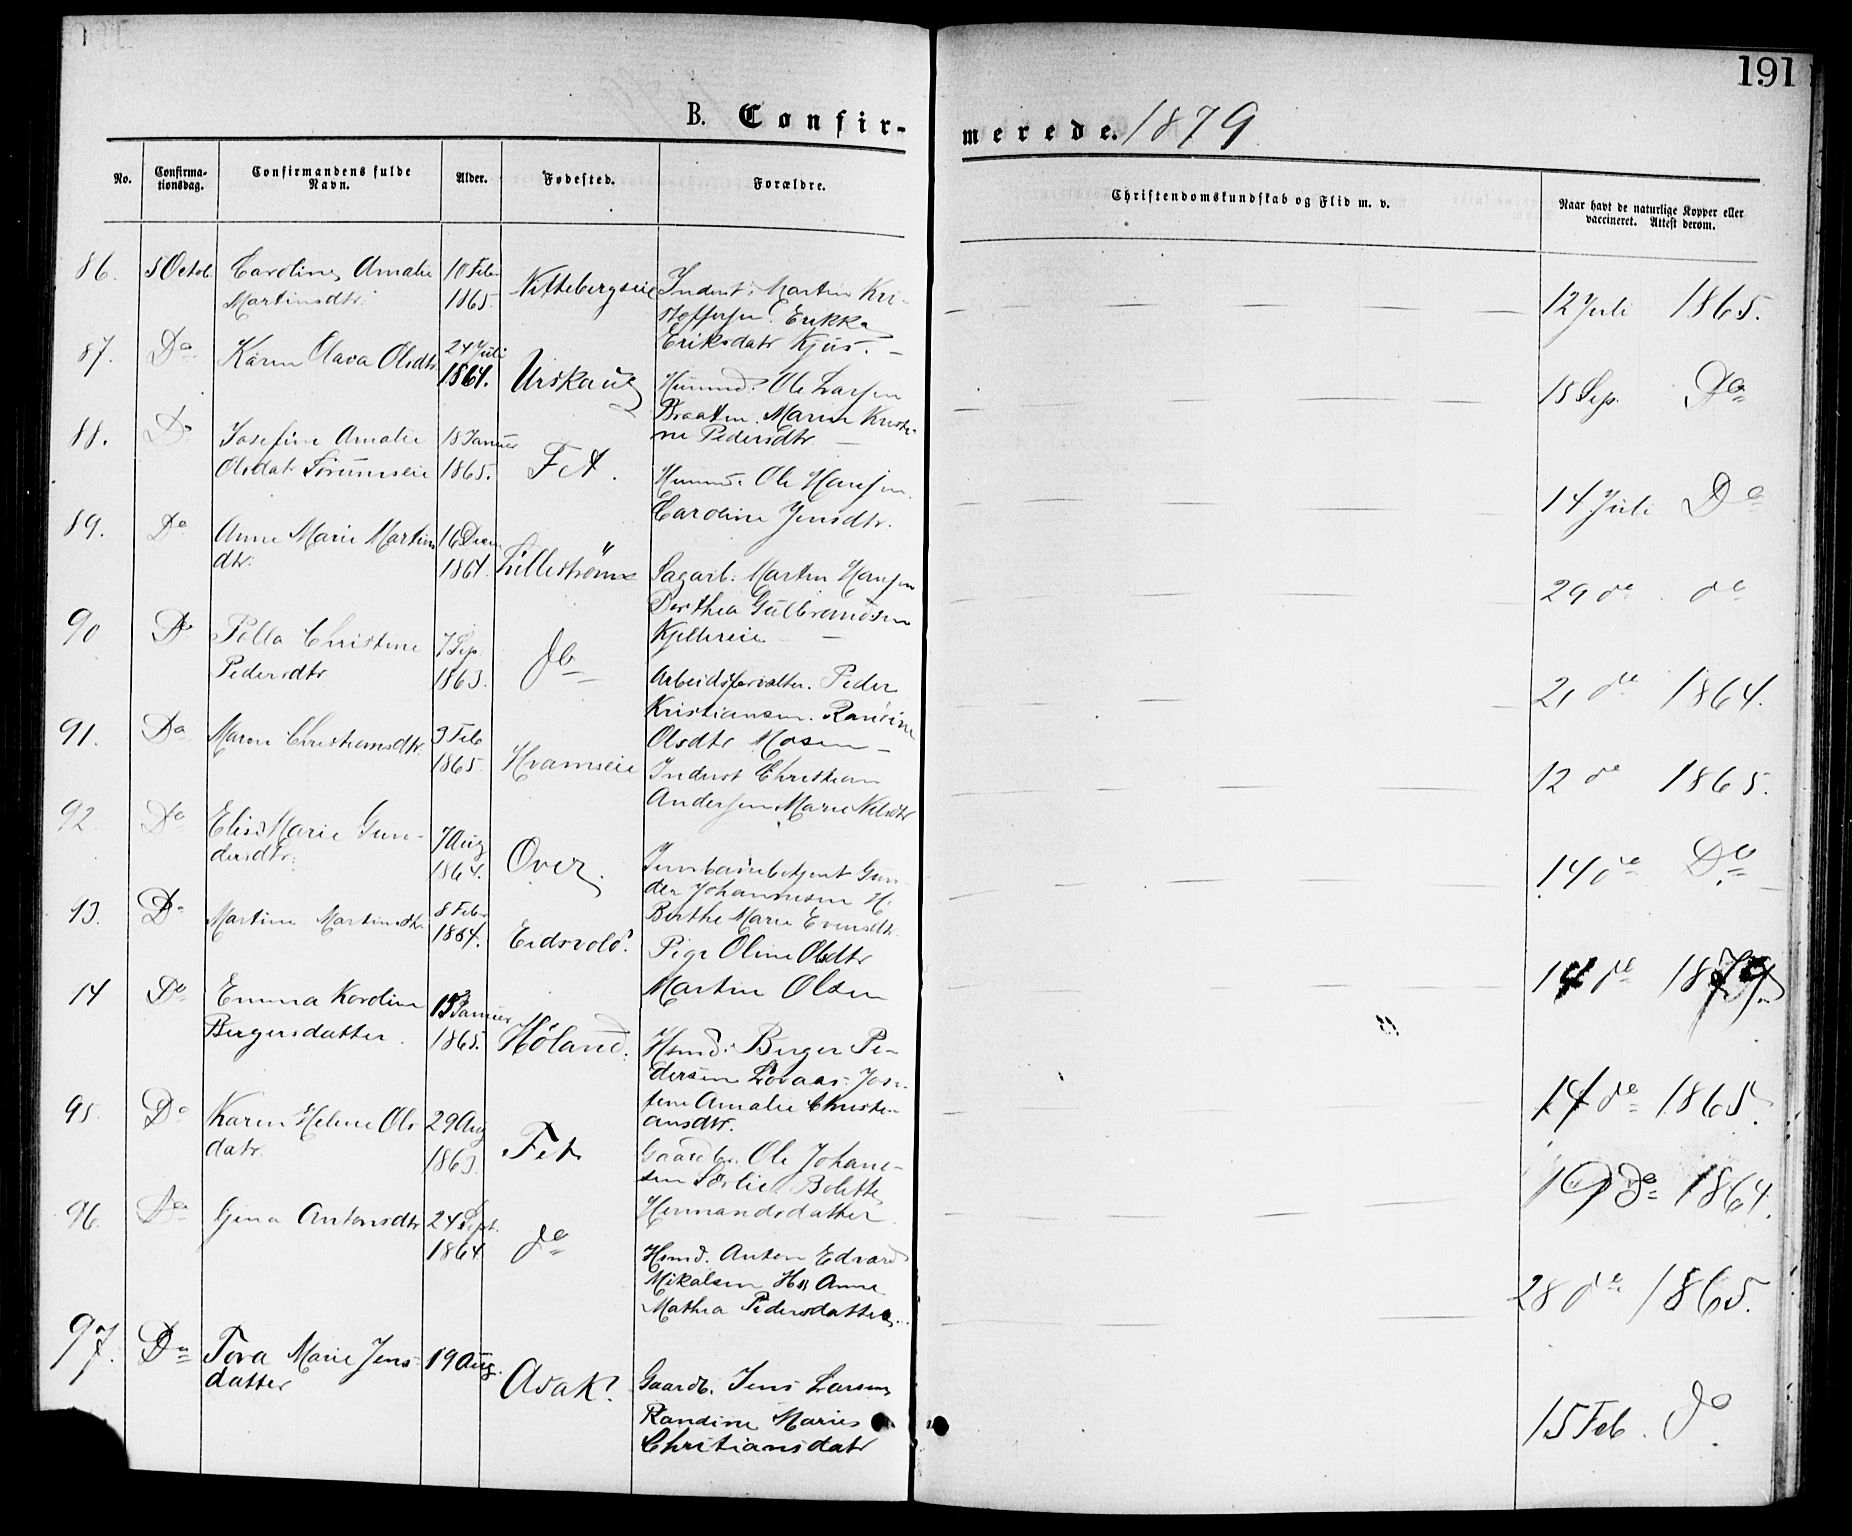 191
B. Confir-
merede. 1879
No.
Confirma-
tionsdag.
Confirmandens fulde
Navn.
Alder.
Fødested.
Forældre.
Christendomskundskab og Flid m. v.
Naar havt de naturlige Kopper eller
vaccineret. Attest derom.
86. 5 Octob. Caroline Amalie 10 Feb
Martinsdtr. 1865. Nittebergseie Inderst Martin Kri-
stoffersen. Erikka
Eriksdatr Kjus. –
12 Juli 1865.
87. Do Karen Olava Olsdtr. 24 Juli
1864. Urskaug Huusmd. Ole Larsen
Braaten. Maren Kristi-
ne Pedersdtr. –
15 Sep. Do
88. Do Josefine Amalie 18 Januer
Olsdat Sørumseie 1865. Fet. Huusmd. Ole Hansen.
Caroline Jensdtr.
14 Juli Do
89. Do Anne Marie Martins 16 Decem
dtr. 1864. Lillestrøm Sagarb. Martin Hansen
Dorthea Gulbrandsen
Kjellereie –
29 do do
90 Do Christine 7 Sep.
Pedersdtr 1863. do Arbeidsforvalter. Peder
Kristiansen. Randine
Olsdtr Mosen –
21 do 1864.
91. Do Maren Christiansdtr 3 Feb
1865. Hvamseie Inderst Christian
Andersen Marie Nilsdtr
12 do 1865.
92. Do Elise Marie Gun-
dersdtr. 7 Aug
1864. Over. Gun-
der Johannesen H.
Berthe Marie Evensdtr.
14 do Do
13. Do Martine Martinsdtr. 8 Feb
1864. Eidsvold. Pige Oline Olsdtr
Martin Olsen
14 do 1879.
14 Do Emma Karoline 13 Januer
Bergersdatter. 1865. Høland. Hsmd. Berger Pe-
dersen Lovaas. Jose-
fine Amalie Christi-
ansdtr.
14 do 1865.
95. Do Karen Helene Ols 29 Aug
datr. 1863. Fet Gaardbr. Ole Johane-
sen Sørlie. Bolette
Hermandsdatter
19 do 1864.
96. Do Gjina Antonsdtr 24 Sept.
1864 do Hsmd. Anton Edvard
Mikalsen Hsr Anne
Mathea Pedersdatter.
28 do 1865.
97. Do Tova Marie Jens- 19 Aug.
datter Asak. Gaardb. Jens Larsen
Randine Maries
Christiansdatr
15 Feb. do